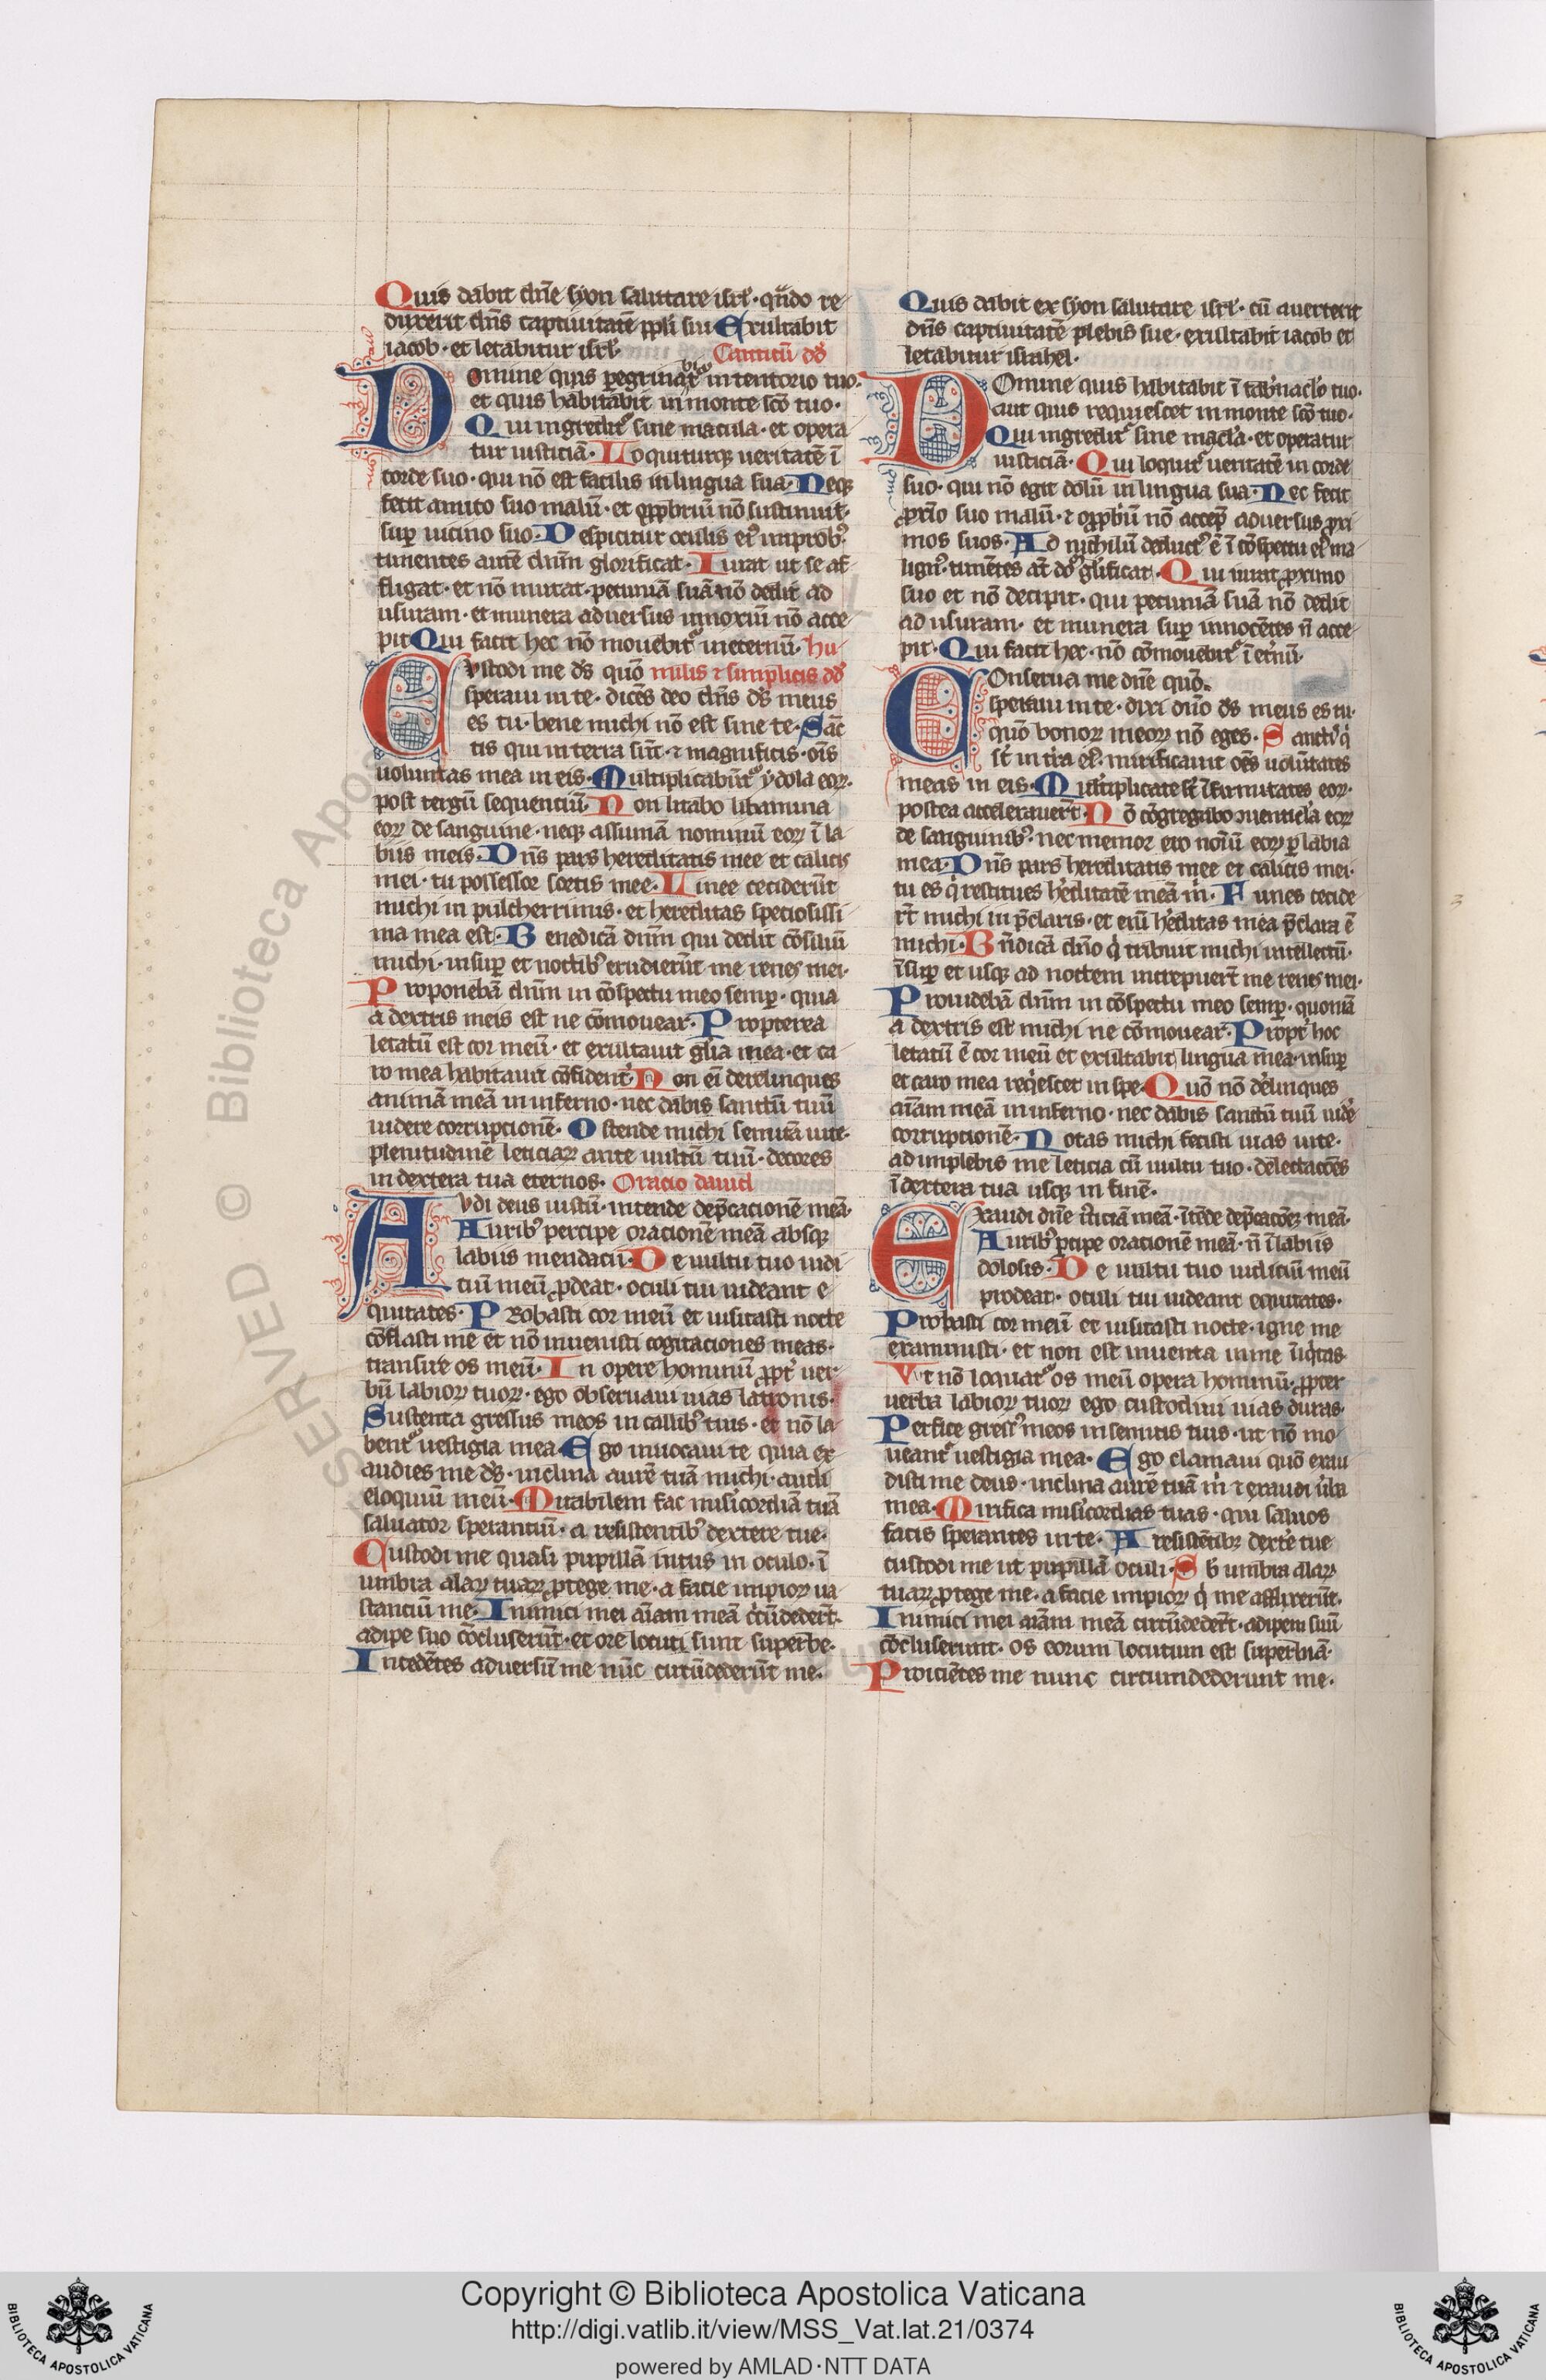 Quis dabit dn̄e syon salutare isrl̄ · qn̄do re
duxerit dn̄s captiuitatē pp̄li sui Exultabit
iacob · et letabitur isrl̄
Canticū dd̄
Domine quis peregrinabit᷑ in tentorio tuo ·
et quis habitabit in monte scō tuo ·
Qui ingredit᷑ sine macula · et opera
tur iusticiā · Loquiturqꝫ ueritatē ī
corde suo · qui nō est facilis in lingua sua · Neqꝫ
fecit amico suo malū · et opprobriū nō sustinuit ·
suꝑ uicino suo · Despicitur oculis eiꝰ improbꝰ ·
timentes autē dnm̄ glorificat · Iurat ut se af
fligat · et nō mutat · pecuniā suā nō dedit ad
usuram · et munera aduersus innoxiū nō acce
pit Qui facit hec nō mouebit᷑ ineternū · hu
Custodi me ds̄ quō milis ⁊ simplicis dd̄
speraui in te · dicēs deo dn̄s ds̄ meus
es tu · bene michi nō est sine te · Sāc
tis qui in terra sūt · ⁊ magnificis · oīs
uoluntas mea in eis · Multiplicabūt᷑ ydola eoꝝ ·
post tergū sequenciū · Non litabo libamina
eoꝝ de sanguine · neqꝫ assumā nominū eoꝝ ī la
biis meis · Dn̄s pars hereditatis mee et calicis
mei · tu possessor sortis mee · Linee ceciderūt
michi in pulcherrimis · et hereditas speciosissi
ma mea est · Benedicā dnm̄ qui dedit cōsiliū
michi · insuꝑ et noctibꝰ erudierūt me renes mei ·
Proponebā dnm̄ in cōspectu meo semꝑ · quia
a dextris meis est ne cōmouear · Propterea
letatū est cor meū · et exultauit glīa mea · et ca
ro mea habitauit cōfident᷑ Non eī derelinques
animā meā in inferno · nec dabis sanctū tuū
uidere corrupcionē · Ostende michi semitā uite ·
plenitudinē leticiaꝝ ante uultū tuū · decores
in dextera tua eternos · Oracio dauid
Audi deus iustū · intende dep̄cacionē meā ·
Auribꝰ percipe oracionē meā absqꝫ
labiis mendacii · De uultu tuo iudi
ciū meū ꝓdeat · oculi tui uideant e
quitates · Probasti cor meū et uisitasti nocte
cōflasti me et nō inuenisti cogitaciones meas ·
transire os meū · In opere hominū ꝓpt᷑ uer
bū labioꝝ tuoꝝ · ego obseruaui uias latronis ·
Sustenta gressus meos in callibꝰ tuis · et nō la
bent᷑ uestigia mea · Ego inuocaui te quia ex
audies me ds̄ · inclina aurē tuā michi · audi
eloquiū meū · Mirabilem fac mis̄icordiā tuā
saluator sperantiū · a resistentibꝰ dextere tue ·
Custodi me quasi pupillā intus in oculo · ī
umbra alaꝝ tuaꝝ ꝓtege me · a facie impioꝝ ua
stantiū me · Inimici mei aīam meā c̄cūdedert̄ ·
adipe suo cōcluserūt · et ore locuti sunt superbe ·
Incedētes aduersū me nūc circūdederūt me ·
Quis dabit ex syon salutare isrl̄ · cū auerterit
dn̄s captiuitatē plebis sue · exultabit iacob et
letabitur israhel ·
Domine quis habitabit ī tab᷑naclō tuo ·
aut quis requiescet in monte scō tuo ·
Qui ingredit᷑ sine macl̄a · et operatur
iusticiā · Qui loquit᷑ ueritatē in corde
suo · qui nō egit dolū in lingua sua · Nec fecit
ꝓxīo suo malū · ⁊ opprobiū nō accep̄ aduersus ꝓxi
mos suos · Ad nichilū deductꝰ ē ī cōspectu eiꝰ ma
lignꝰ · timētes at̄ dō gl̄ificat · Qui iurat ꝓximo
suo et nō decipit · qui pecuniā suā nō dedit
ad usuram · et munera suꝑ innocētes n̄ acce
pit · Qui facit hec · nō cōmouebit᷑ ī et᷑nū ·
Conserua me dn̄e quō
speraui in te · dixi dn̄o ds̄ meus es tu ·
quō bonoꝝ meoꝝ nō eges · Sanctis q̄
st̄ in t᷑ra eiꝰ · mirificauit oēs uolūtates
meas in eis · Multiplicate st̄ īfirmitates eoꝝ ·
postea accelerauert̄ · Nō cōgregabo uenticl̄a eoꝝ
de sanguinibꝰ · nec memor ero noīū eoꝝ ꝑ labia
mea · Dn̄s pars hereditatis mee et calicis mei ·
tu es q̄ restitues h᷑editatē meā m̄ · Funes cecide
rt̄ michi in p̄claris · et enī h᷑editas mea p̄clara ē
michi · Bn̄dicā dn̄o q̄ tribuit michi intellectū ·
īsuꝑ et usqꝫ ad noctem increpuert̄ me renes mei ·
Prouidebā dnm̄ in cōspectu meo semꝑ · quoniā
a dextris est michi ne cōmouear · Propt᷑ hoc
letatū ē cor meū et exultabit lingua mea · insuꝑ
et caro mea reqiescet in spe · Quō nō d᷑elinques
aīam meā in inferno · nec dabis sanctū tuū uid᷑e
corrupcionē · Notas michi fecisti uias uite ·
adimplebis me leticia cū uultu tuo · delectacōēs
ī dextera tua usqꝫ in finē ·
Exaudi dn̄e iusticiā meā · ītēde dep̄cacōēꝫ meā ·
Auribꝰ ꝑcipe oracionē meā · n̄ ī labiis
dolosis · De uultu tuo iudiciū meū
prodeat · oculi tui uideant equitates ·
Probasti cor meū et uisitasti nocte · igne me
examinasti · et non est inuenta in me iniq̄tas
Ut nō loquat᷑ os meū opera hominū · ꝓpter
uerba labioꝝ tuoꝝ ego custodiui uias duras ·
Perfice gressꝰ meos in semitis tuis · ut nō mo
ueant᷑ uestigia mea · Ego clamaui quō exau
disti me deus · inclina aurē tuā m̄ ⁊ exaudi u᷑ba
mea · Mirifica mis̄icordias tuas · qui saluos
facis sperantes in te · A resistētibꝫ dext᷑e tue
custodi me ut pupillā oculi · Sb̄ umbra alaꝝ
tuaꝝ ꝓtege me · a facie impioꝝ q̄ me afflixerūt ·
Inimici mei aīam meā circūdedert̄ · adipem suū
cōcluserunt · os eorum locutum est superbiā ·
Proiciētes me nunc circumdederunt me ·
SERVED © Biblioteca Apos
Copyright © Biblioteca Apostolica Vaticana
http://digi.vatlib.it/view/MSS_Vat.lat.21/0374
powered by AMLAD·NTT DATA
BIBLIOTECA APOSTOLICA VATICANA
BIBLIOTECA APOSTOLICA VATICANA